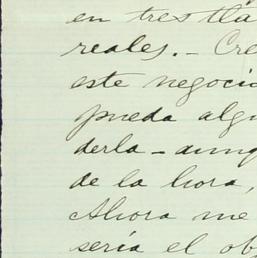 en tres tla
reales. - Cre
este negocio
pueda algu
derla - aunq
de la hora,
Ahora me
sería el ob